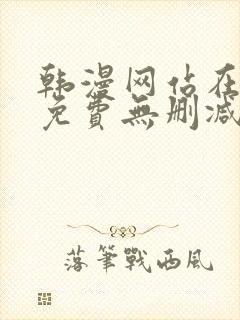 韩漫网站在
免費無刪减
落筆戰西風